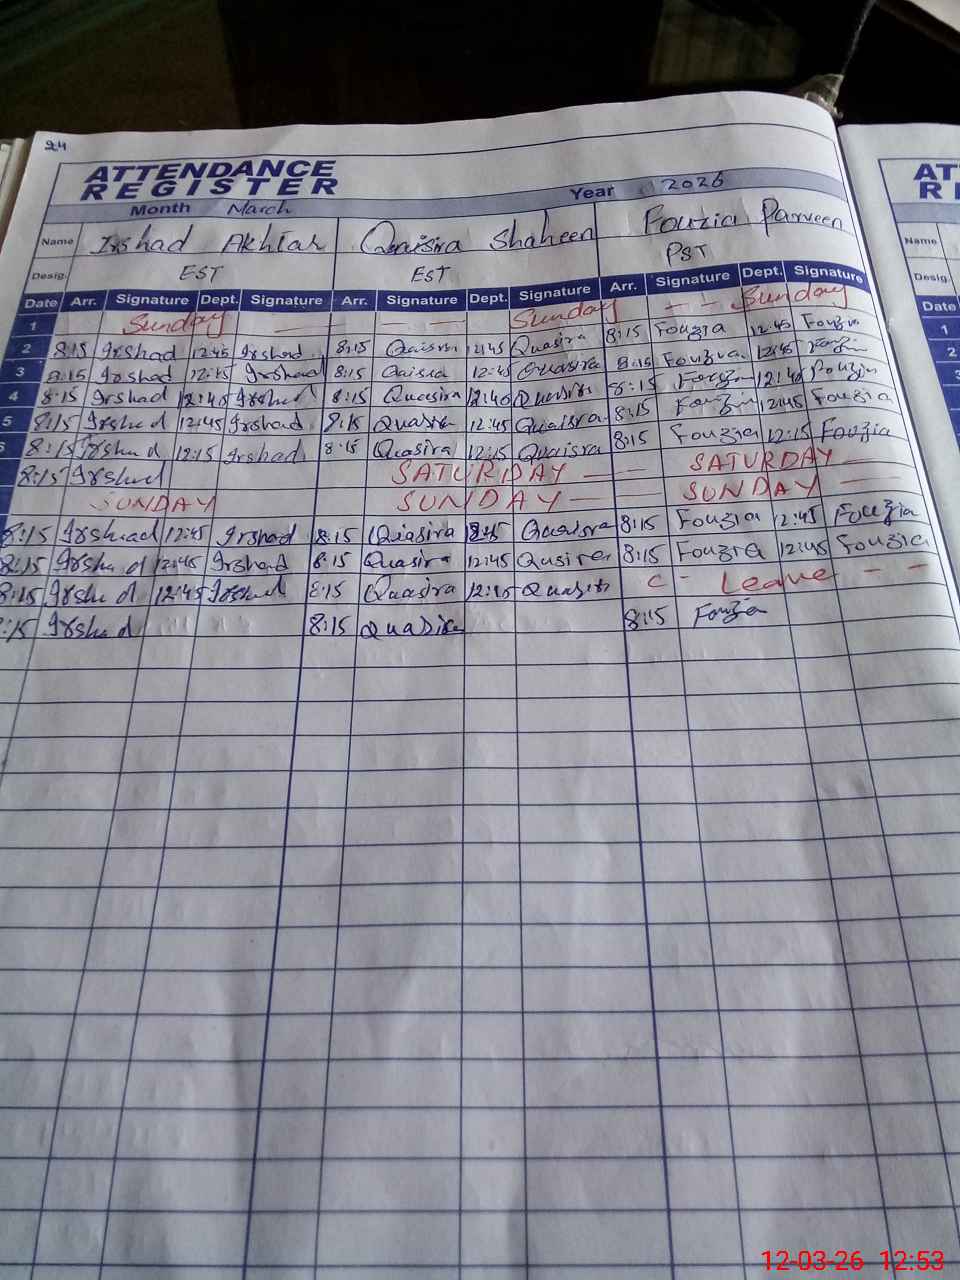 24
ATTENDANCE
REGISTER
Year 2026
Month March
Name Irshad Akhtar Qaisira Shaheen Fouzia Parveen
Desig. EST EST PST
Date Arr. Signature Dept. Signature Arr. Signature Dept. Signature Arr. Signature Dept. Signature
1 Sunday — — — — Sunday — — Sunday
2 8:15 Irshad 12:45 Irshad 8:15 Qaisra 12:45 Quasira 8:15 Fouzia 12:45 Fouzia
3 8:15 Irshad 12:45 Irshad 8:15 Qaisra 12:45 Quasira 8:15 Fouzia 12:45 Fouzia
4 8:15 Irshad 12:45 Irshad 8:15 Quasira 12:40 Quasira 8:15 Fouzia 12:40 Fouzia
5 8:15 Irshad 12:45 Irshad 8:15 Quasira 12:45 Quaisra 8:15 Fouzia 12:45 Fouzia
8:15 Irshad 12:15 Irshad 8:15 Quasira 12:15 Quaisra 8:15 Fouzia 12:15 Fouzia
8:15 Irshad SATURDAY — — SATURDAY —
SUNDAY SUNDAY — — SUNDAY —
8:15 Irshad 12:45 Irshad 8:15 Qiasira 12:45 Quasra 8:15 Fouzia 12:45 Fouzia
8:15 Irshad 12:45 Irshad 8:15 Quasira 12:45 Qusira 8:15 Fouzia 12:45 Fouzia
8:15 Irshad 12:45 Irshad 8:15 Quasira 12:45 Quasira C - Leave - -
:15 Irshad 8:15 Quasira 8:15 Fouzia
AT
RE
Name
Desig.
Date
1
2
12-03-26 12:53